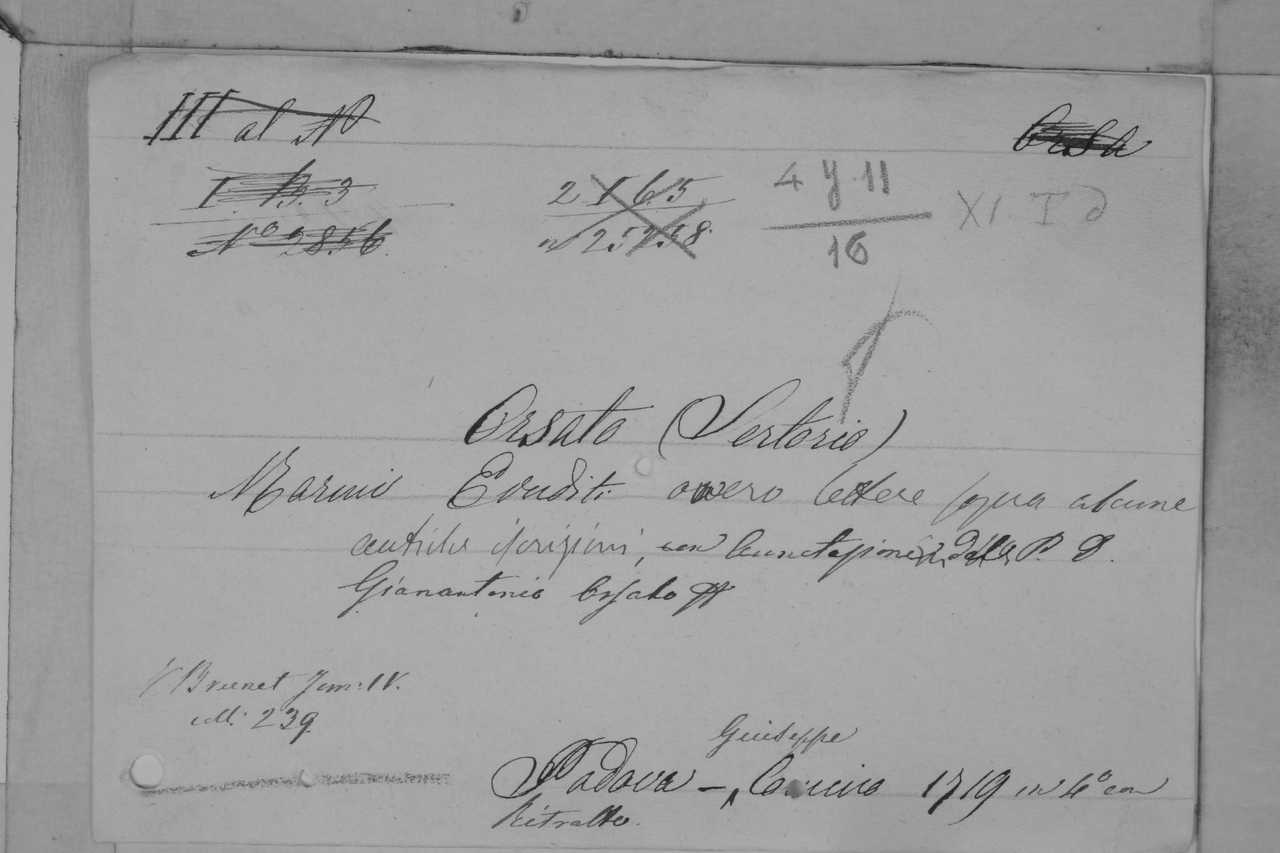 III al N°
Orsa
I. B. 3
N° 2856.
2 I 6.5
n 25258.
4 y 11
16
XI I d
Orsato (Sertorio)
Marmi Eruditi ovvero lettere sopra alcune
antiche iscrizioni, con Annotazioni del P. D.
Gianantonio Orsato
V Brunet Tom: IV.
col: 239
Giuseppe
Padova – Comino 1719 in 4° con
Ritratto.